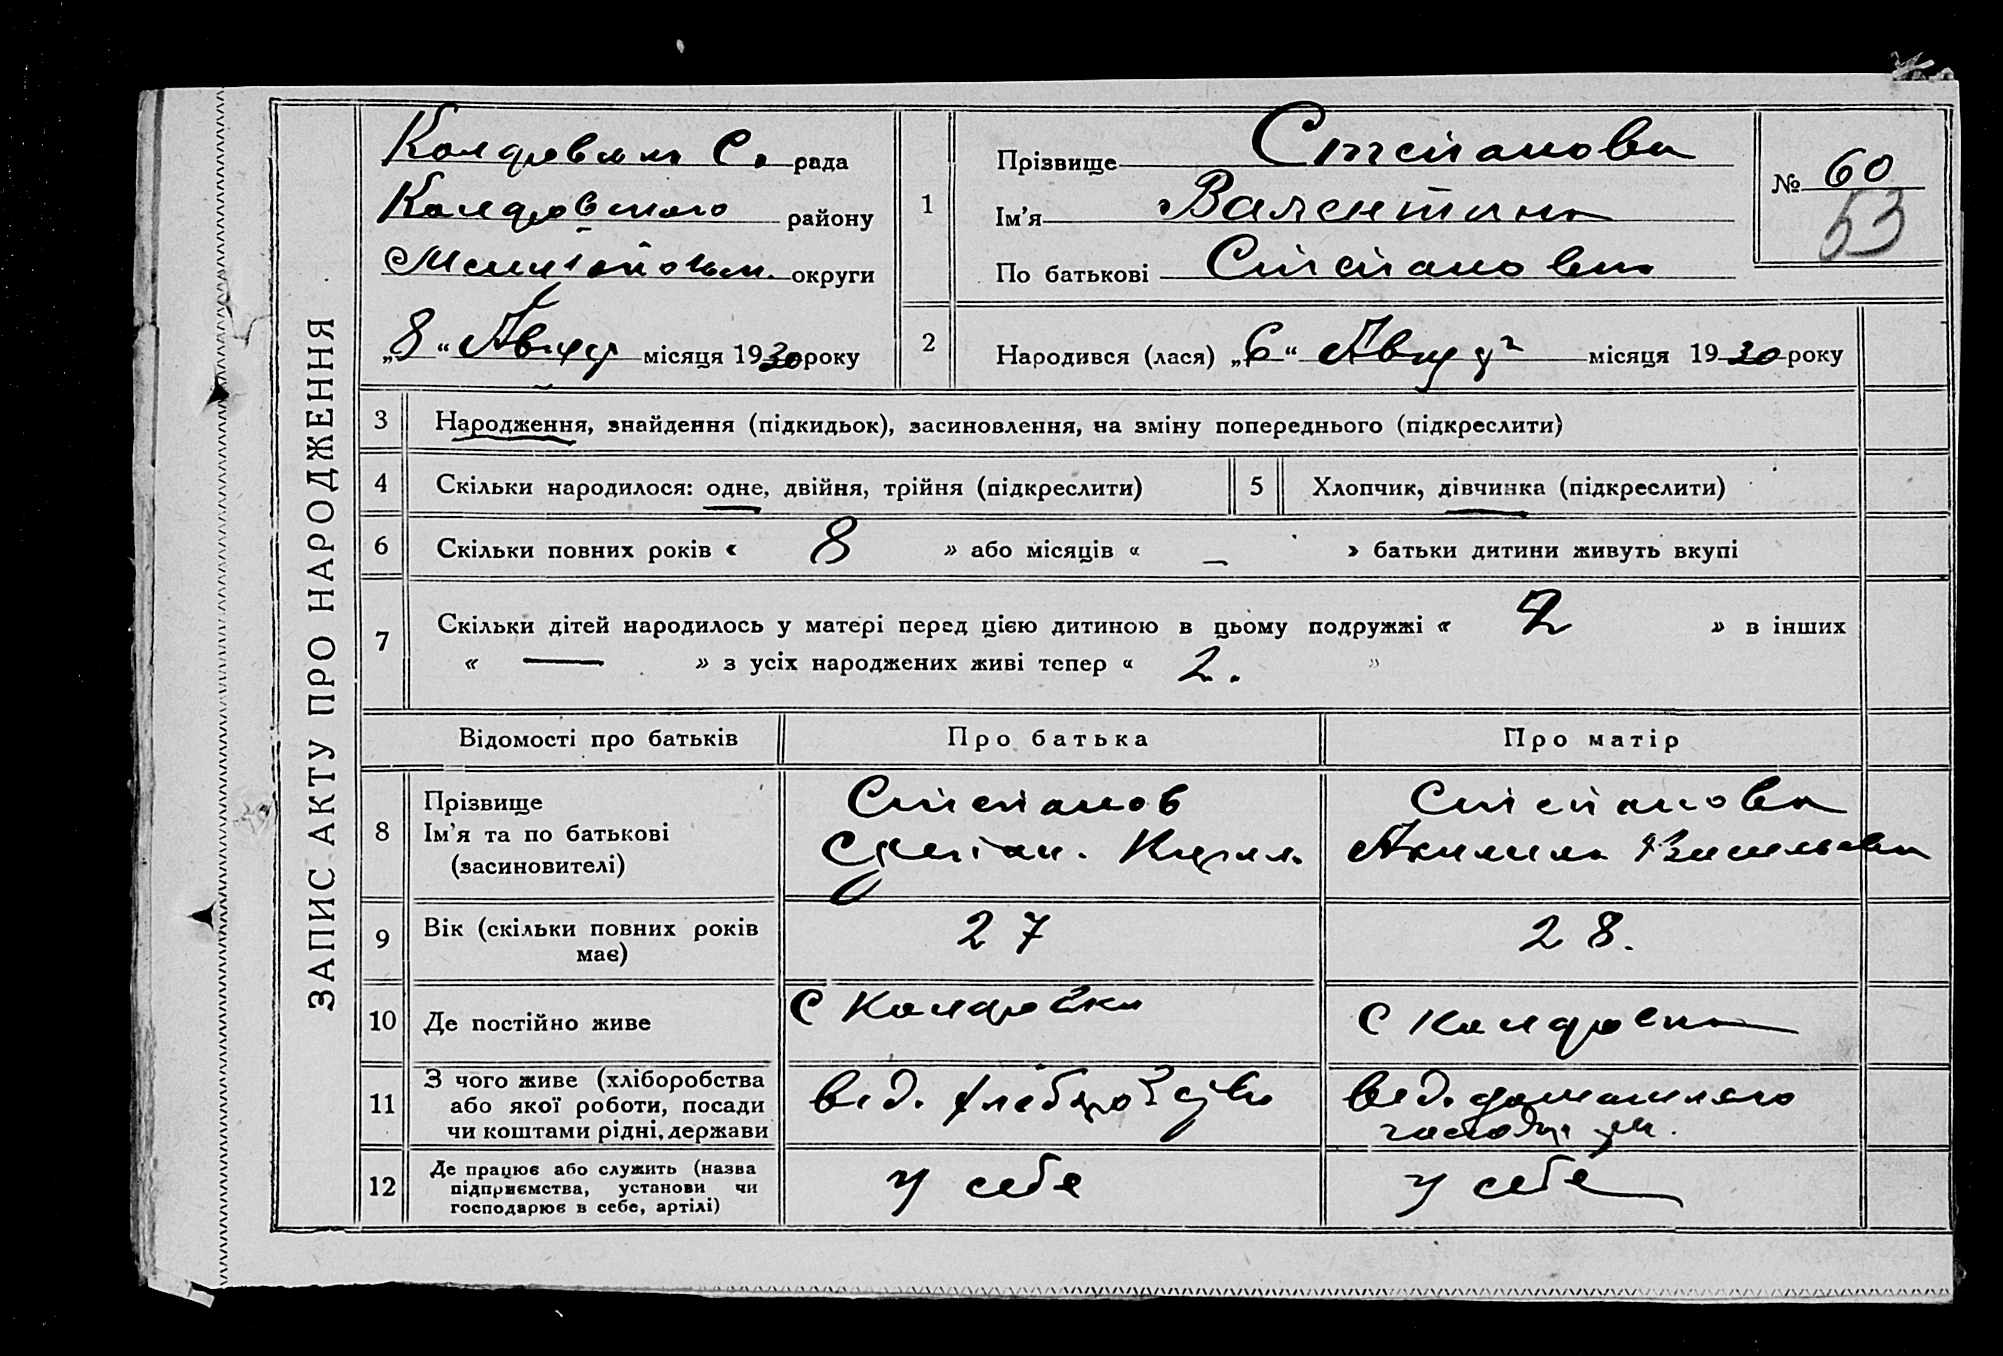 ЗАПИС АКТУ ПРО НАРОДЖЕННЯ
рада
району
округи
„8“ Август місяця 1930 року
1
Прізвище Степанова
Ім’я Валентина
По батькові Степановна
№ 60
53
2
Народився (лася) „6“ Август місяця 1930 року
3
Народження, знайдення (підкидьок), засиновлення, на зміну попереднього (підкреслити)
4
Скільки народилося: одне, двійня, трійня (підкреслити)
5
Хлопчик, дівчинка (підкреслити)
6
Скільки повних років « 8 » або місяців « – » батьки дитини живуть вкупі
7
Скільки дітей народилось у матері перед цією дитиною в цьому подружжі « 2 » в інших
« — » з усіх народжених живі тепер « 2. »
Відомості про батьків
Про батька
Про матір
8
Прізвище
Ім’я та по батькові
(засиновителі)
Степанов
Степан. Кирил.
Степанова
Акилина
9
Вік (скільки повних років
має)
27
28.
10
Де постійно живе
С
С
11
З чого живе (хліборобства
або якої роботи, посади
чи коштами рідні, держави
від. хліборобства
від. домашнего
господар.
12
Де працює або служить (назва
підприємства, установи чи
господарює в себе, артілі)
у себе
у себе